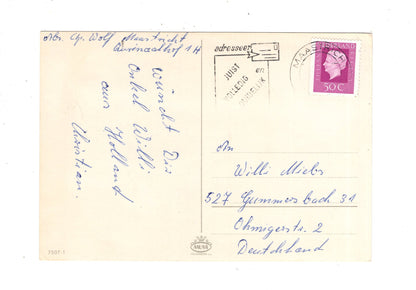 Abs. Chr. Wolf Maastricht
wünscht Dir
Onkel Willi
aus Holland
Christian.
adresseer
JUIST
VOLLEDIG
en
DUIDELIJK
MAAS
NEDERLAND
50C
An
Willi Miebs
527 Gummersbach 31
Ohmigerstr. 2
Deutschland
7507-1